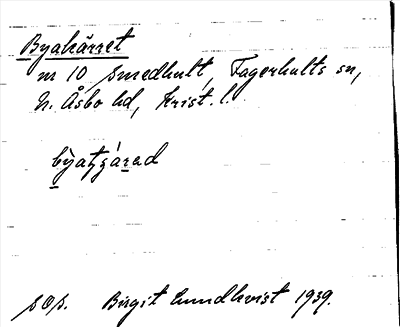 Byakärret
nr 10 Smedhult, Fagerhults sn,
N. Åsbo hd, Krist. l.
Birgit Lundkvist 1939.